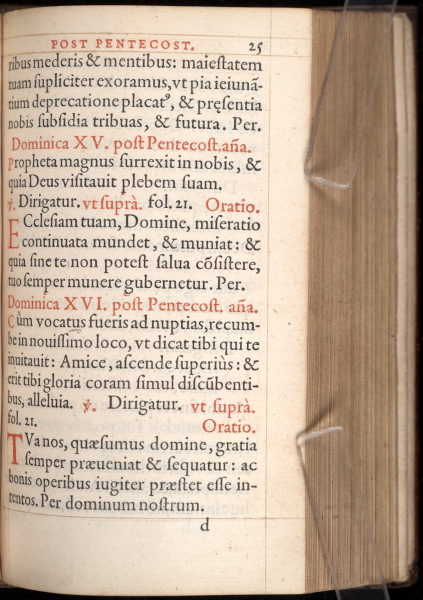 POST PENTECOST. 25
ribus mederis & mentibus: maiestatem
tuam supliciter exoramus, vt pia ieiunã-
tium deprecatione placatꝰ, & pręsentia
nobis subsidia tribuas, & futura. Per.
Dominica XV. post Pentecost. aña.
Propheta magnus surrexit in nobis, &
quia Deus visitauit plebem suam.
℣. Dirigatur. vt suprà. fol. 21. Oratio.
ECclesiam tuam, Domine, miseratio
continuata mundet, & muniat: &
quia sine te non potest salua cõsistere,
tuo semper munere gubernetur. Per.
Dominica XVI. post Pentecost. aña.
Cùm vocatus fueris ad nuptias, recum-
be in nouissimo loco, vt dicat tibi qui te
inuitauit: Amice, ascende superiùs: &
erit tibi gloria coram simul discũbenti-
bus, alleluia. ℣. Dirigatur. vt suprà.
fol. 21. Oratio.
TVa nos, quæsumus domine, gratia
semper præueniat & sequatur: ac
bonis operibus iugiter præstet esse in-
tentos. Per dominum nostrum.
d